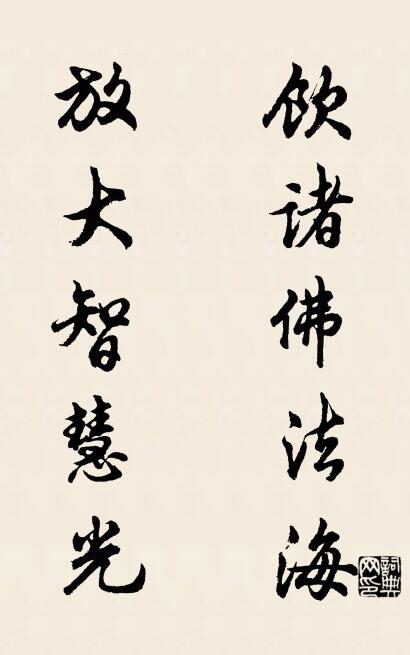 饮诸佛法海
放大智慧光
詞典网印